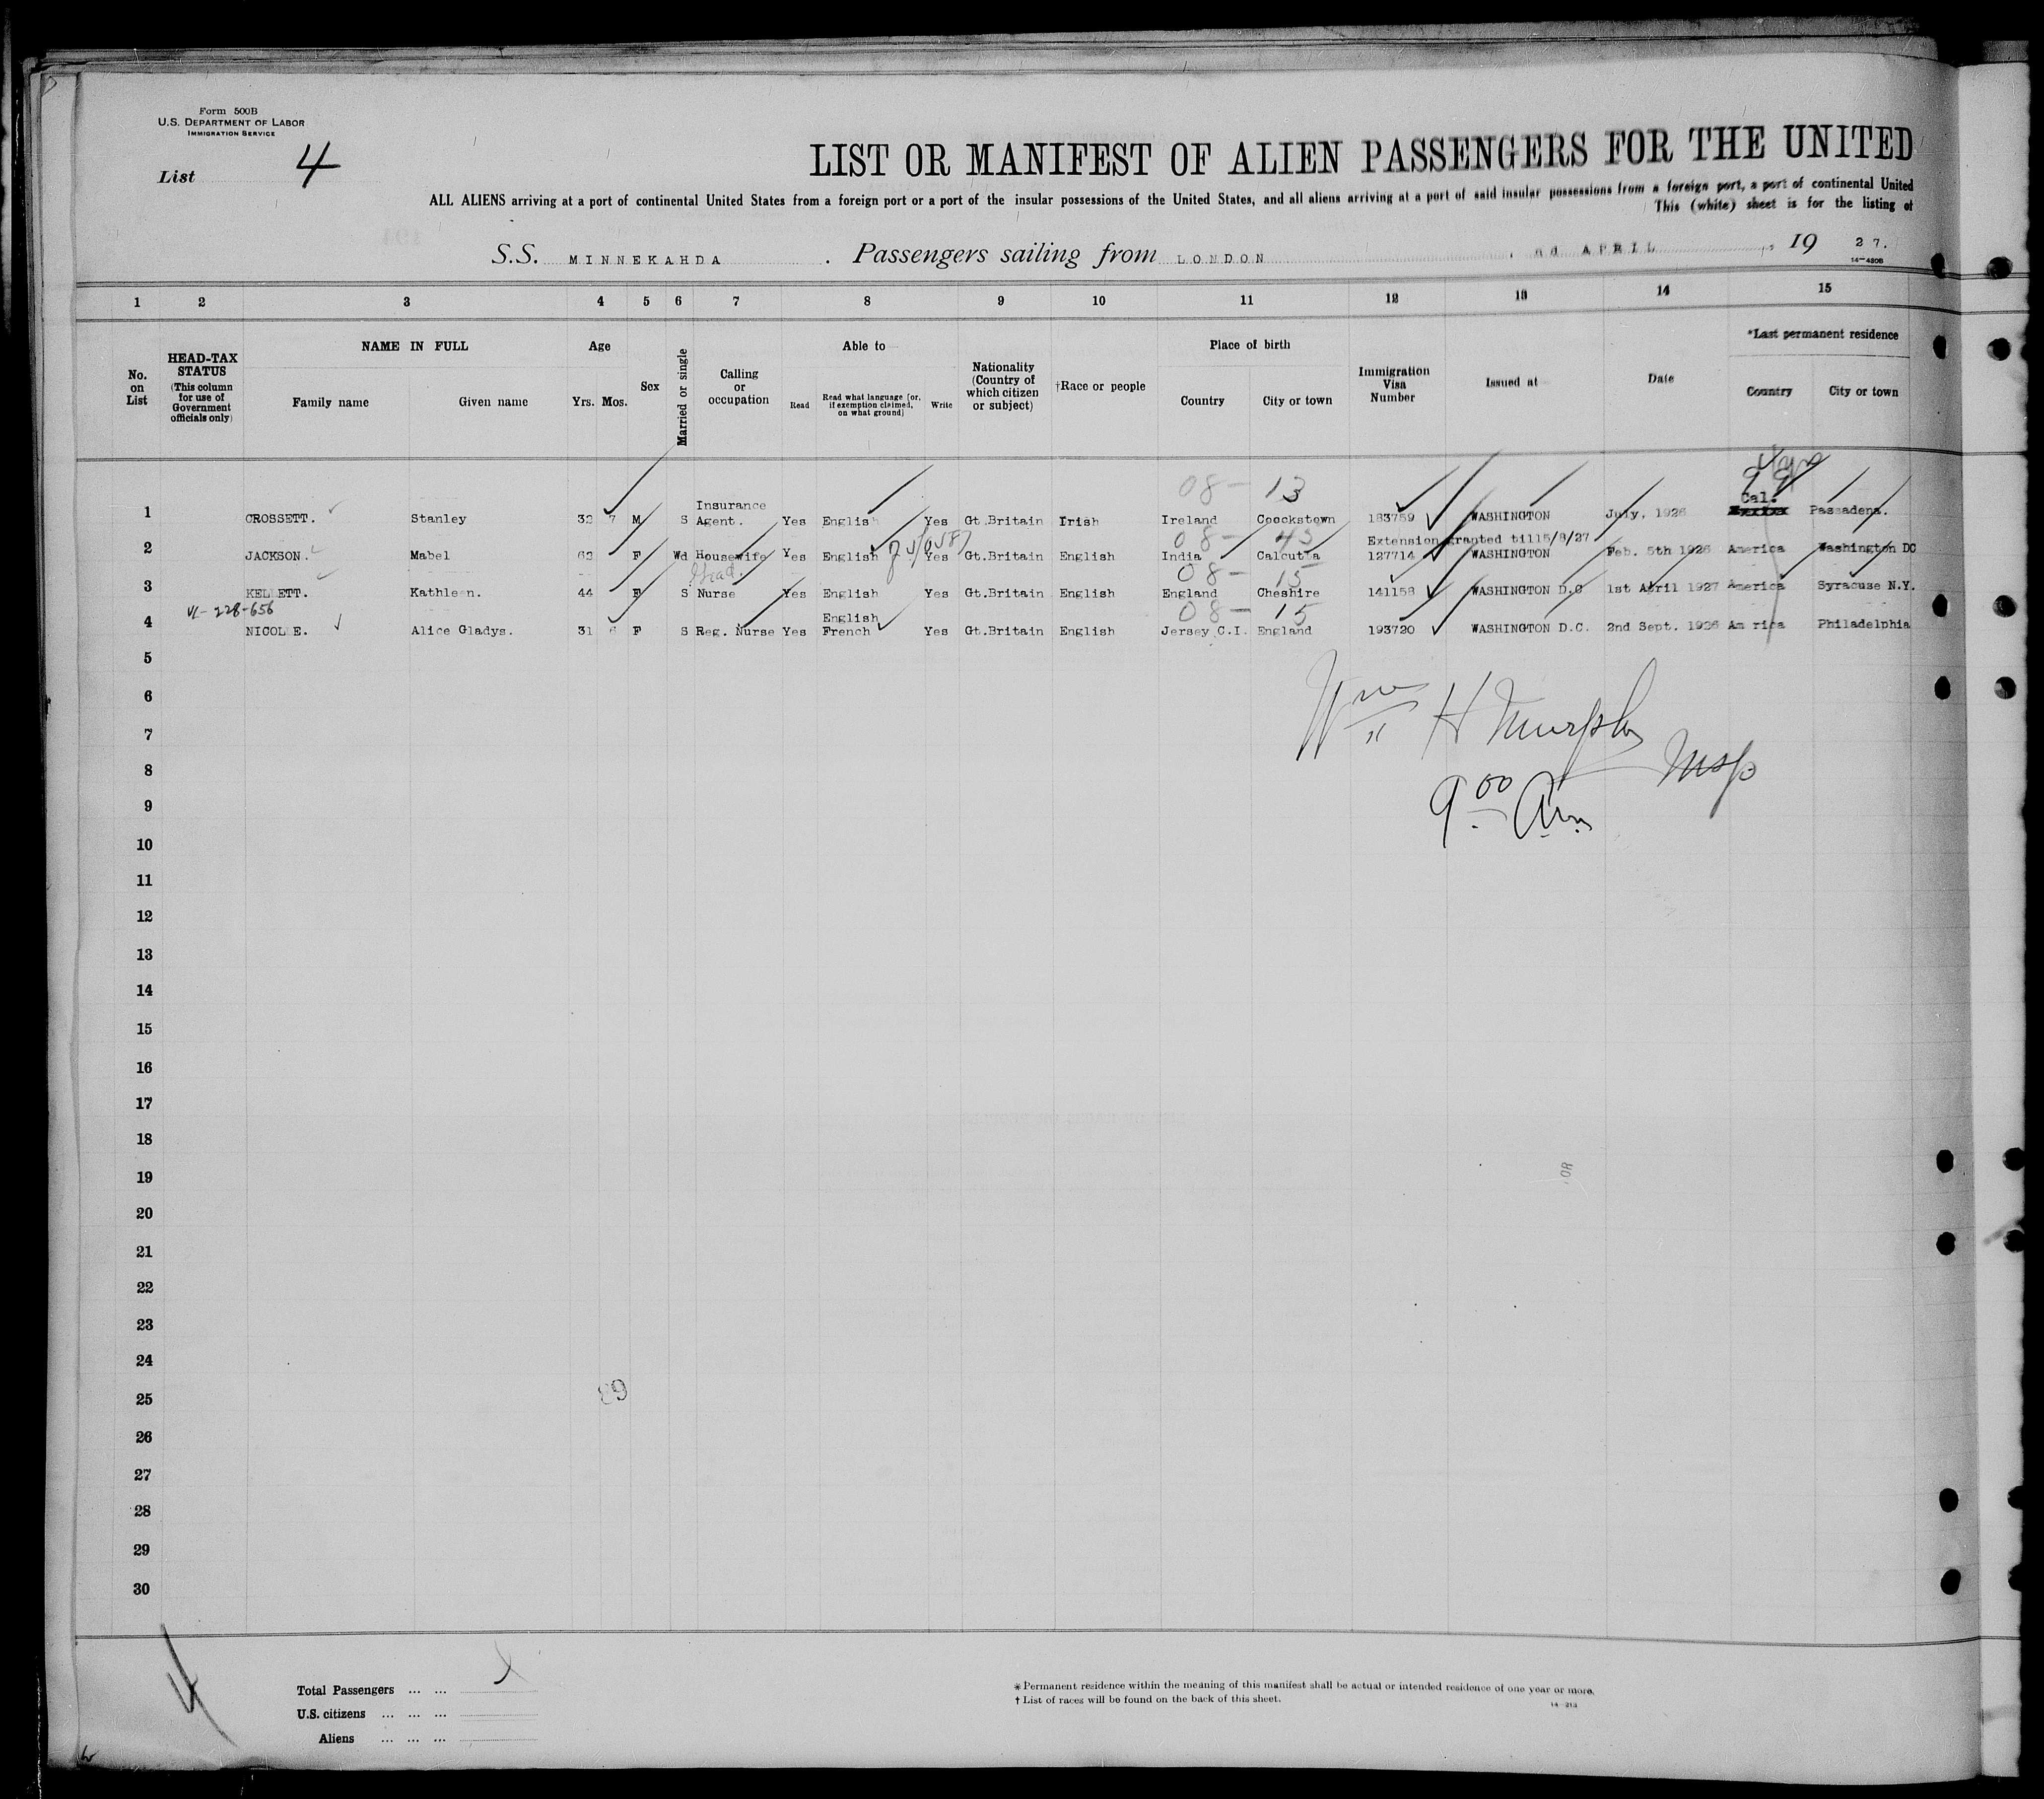 Form 500B
U.S. DEPARTMENT OF LABOR
IMMIGRATION SERVICE
List 4
LIST OR MANIFEST OF ALIEN PASSENGERS FOR THE UNITED
ALL ALIENS arriving at a port of continental United States from a foreign port or a port of the insular possessions of the United States, and all aliens arriving at a port of said insular possessions from a foreign port, a port of continental United
This (white) sheet is for the listing of
S.S. MINNEKAHDA . Passengers sailing from LONDON , APRIL , 19 27.
14-430B
1 2 3 4 5 6 7 8 9 10 11 12 13 14 15
No. on List
HEAD-TAX STATUS (This column for use of Government officials only)
NAME IN FULL
Family name Given name
Age
Yrs. Mos.
Sex
Married or single
Calling or occupation
Able to
Read Read what language [or, if exemption claimed, on what ground] Write
Nationality (Country of which citizen or subject)
†Race or people
Place of birth
Country City or town
Immigration Visa Number
Issued at
Date
*Last permanent residence
Country City or town
08- 13
1 CROSSETT. Stanley 32 7 M S Insurance Agent. Yes English Yes Gt.Britain Irish Ireland Coockstown 183759 WASHINGTON July, 1926 Cal. Passadena.
08- 43
Extension granted till 5/8/27
2 JACKSON. Mabel F Wd Housewife Yes English Yes Gt.Britain English India Calcutta 127714 WASHINGTON Feb. 5th 1926 America Washington DC
Grad. 08- 15
3 KELLETT. Kathleen. 44 F S Nurse Yes English Yes Gt.Britain English England Cheshire 141158 WASHINGTON D.C 1st April 1927 America Syracuse N.Y.
VL-228-656 08- 15
4 NICOLLE. Alice Gladys. 31 6 F S Reg. Nurse Yes English French Yes Gt.Britain English Jersey C.I. England 193720 WASHINGTON D.C. 2nd Sept. 1926 Am rica Philadelphia
5
6
Wm H Murphy
7
8
Insp
9
9 00 Am
10
11
12
13
14
15
16
17
18
19
20
21
22
23
24
25
26
27
28
29
30
4
Total Passengers ... ...
U.S. citizens ... ... ...
Aliens ... ... ...
* Permanent residence within the meaning of this manifest shall be actual or intended residence of one year or more.
† List of races will be found on the back of this sheet.
14-213